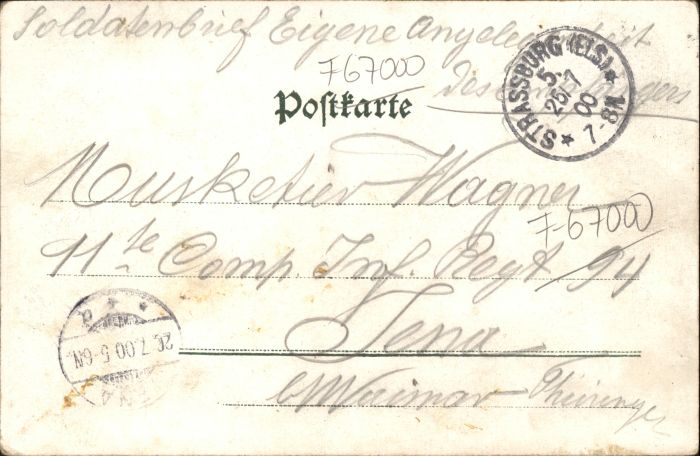 Soldatenbrief Eigene Angelegenheit
des Empfängers
767000
Postkarte
STRASSBURG (ELS) *
5.
25 7
00
* 7-8N
Musketier Wagner
7-67000
11te Comp. Inf. Regt 94
Jena
b/Weimar Thüringen
JENA
26.7.00.5-6N.